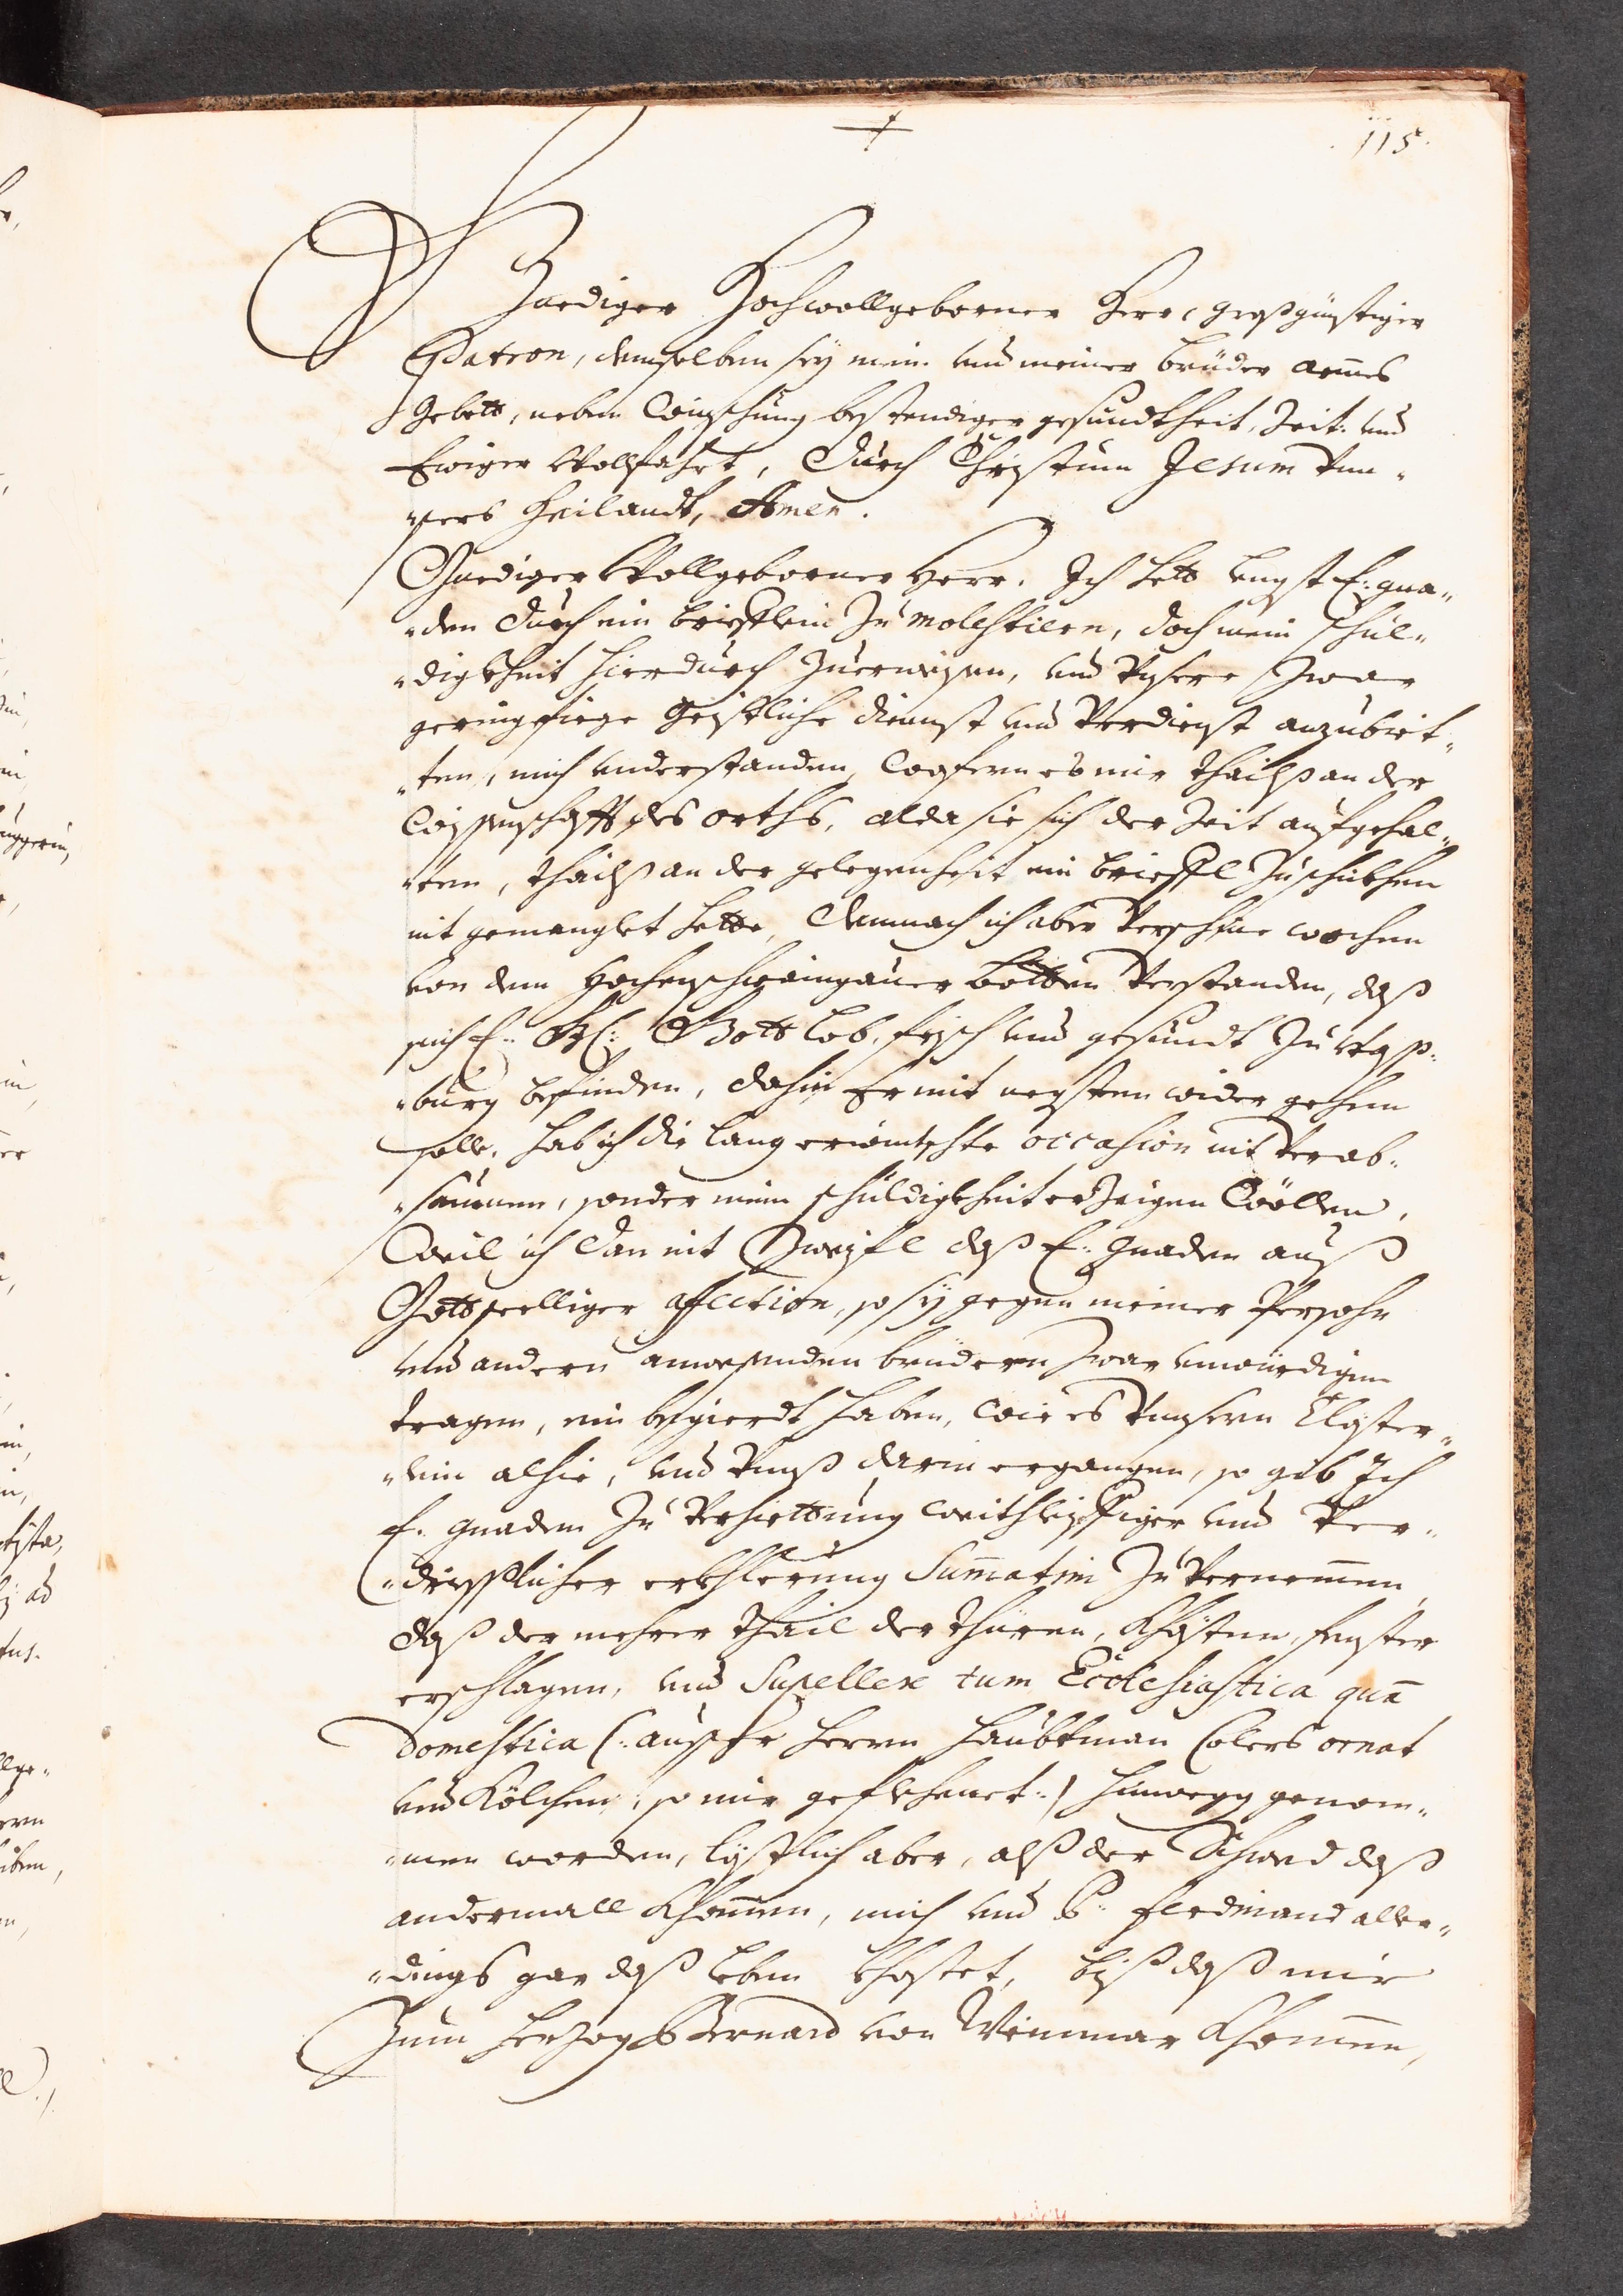 115.
Gnediger Hochwollgeborner Herr, großgünstiger
Patron, demselben sey mein und meiner brüder armes
Gebett, neben Winschung bestendiger gesundtheit, Zeit: und
Ewiger Wollfahrt, durch Christum Jesum Vnn„
„sers Heilandt, Amen.
Gnediger Wollgeborner Herr. Ich hett lengst E: gna„
„den durch ein briefflein Zu molestiern, doch mein schul„
„digkheit hierdurch Zuerweysen, und Vnsere Zwar
geringfiege Geistliche dienst und Verdienst anzubiet„
„ten, mich understanden, Wofern es mir thailß an der
Wissenschafft des orths, alda sie sich der Zeit auffgehal„
„ten, thailß an der gelegenheit ein brieffl Zuschikhen
nit gemanglet hette, Demnach ich aber Verschine wochen
von dem Hochenschwaingauer botten Verstanden, daß
sich E: G: Gott lob, frisch und gesundt Zu
„burg befinden, dahin Er mit negsten wider gehen
solle, hab ich die lang erwüntschte occasion nit Verab„
„saumen, sonder mein schuldigkheit erzeigen Wöllen,
Weil ich dan nit Zweifle daß E: Gnaden auß
Gottseelliger affection, so sy gegen meiner Persohn
und andern anwesenden brüdern Zwar unwürdigen
tragen, ein begierdt haben, Wie es Vnnserm Closter„
„lein alhie, und Vnnß darin ergangen, so gib Ich
E. gnaden Zu Verhiettung weithleiffiger und Ver„
„drießlicher erkhlerung Sum̄atim Zu Vernem̄en,
daß der mehrer thail der thüren, Khästen, fenster
erschlagen, und Supellex tum Ecclesiastica quā
Domestica (: ausser Herrn Haubtman Colers ornat
und Kölchen, so mir geflehenet :) hinwegg genom„
„men worden, lestlich aber, alß der Schwed daß
andermall Khom̄en, mich und P: Ferdinand aller„
„dings gar daß leben khostet, biß daß mir
Zum Herzog Bernard von Weinmar Khom̄en,